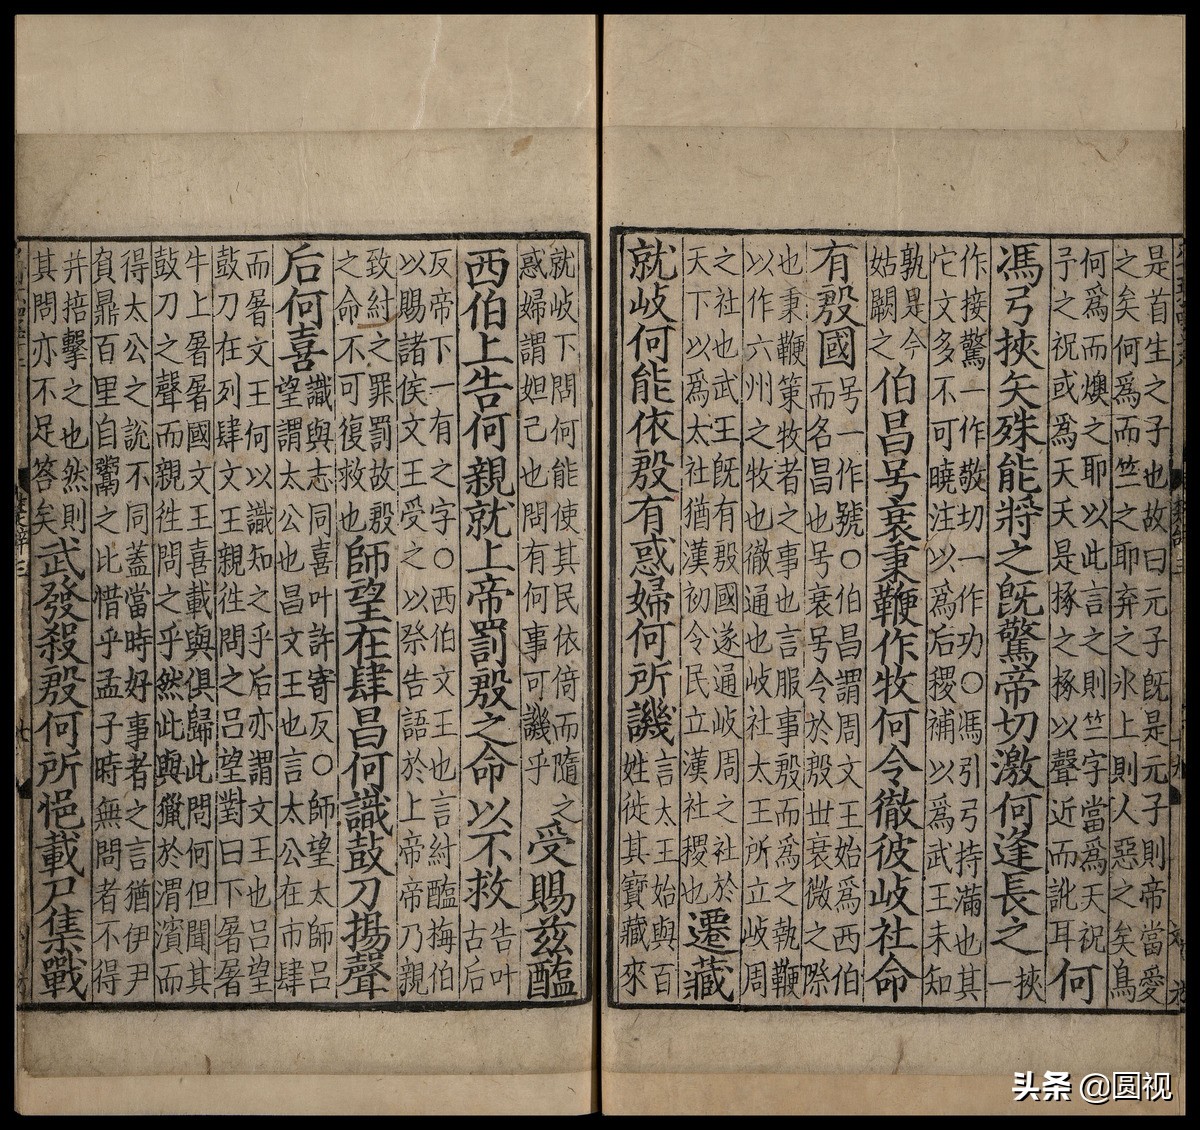 是首生之子也故曰元子旣是元子則帝當愛
之矣何爲而竺之耶弃之氷上則人惡之矣鳥
何爲而燠之耶以此言之則竺字當爲天祝
予之祝或爲夭夭是椓之椓以聲近而訛耳何
馮弓挾矢殊能將之旣驚帝切激何逢長之挾一
作接驚一作敬切一作功○馮引弓持滿也其
它文多不可曉注以爲后稷補以爲武王未知
孰是今姑闕之伯昌号衰秉鞭作牧何令徹彼岐社命
有殷國号一作號○伯昌謂周文王始爲西伯
而名昌也号衰号令於殷世衰微之際
也秉鞭策牧者之事也言服事殷而爲之執鞭
以作六州之牧也徹通也岐社太王所立岐周
之社也武王旣有殷國遂通岐周之社於
天下以爲太社猶漢初令民立漢社稷也遷藏
就岐何能依殷有惑婦何所譏言太王始與百
姓徙其寶藏來
就岐下問何能使其民依倚而隨之
惑婦謂妲己也問有何事可譏乎受賜兹醢
西伯上告何親就上帝罰殷之命以不救告叶古后
反帝下一有之字○西伯文王也言紂醢梅伯
以賜諸侯文王受之以祭告語於上帝帝乃親
致紂之罪罰故殷
之命不可復救也師望在肆昌何識鼓刀揚聲
后何喜識與志同喜叶許寄反○師望太師吕
望謂太公也昌文王也言太公在市肆
而屠文王何以識知之乎后亦謂文王也吕望
鼓刀在列肆文王親徃問之吕望對曰下屠屠
牛上屠屠國文王喜載與俱歸此問何但聞其
鼓刀之聲而親徃問之乎然此與獵於渭濱而
得太公之說不同蓋當時好事者之言猶伊尹
負鼎百里自鬻之比惜乎孟子時無問者不得
并掊擊之也然則
其問亦不足答矣武發殺殷何所悒載尸集戰
头条 @圆视